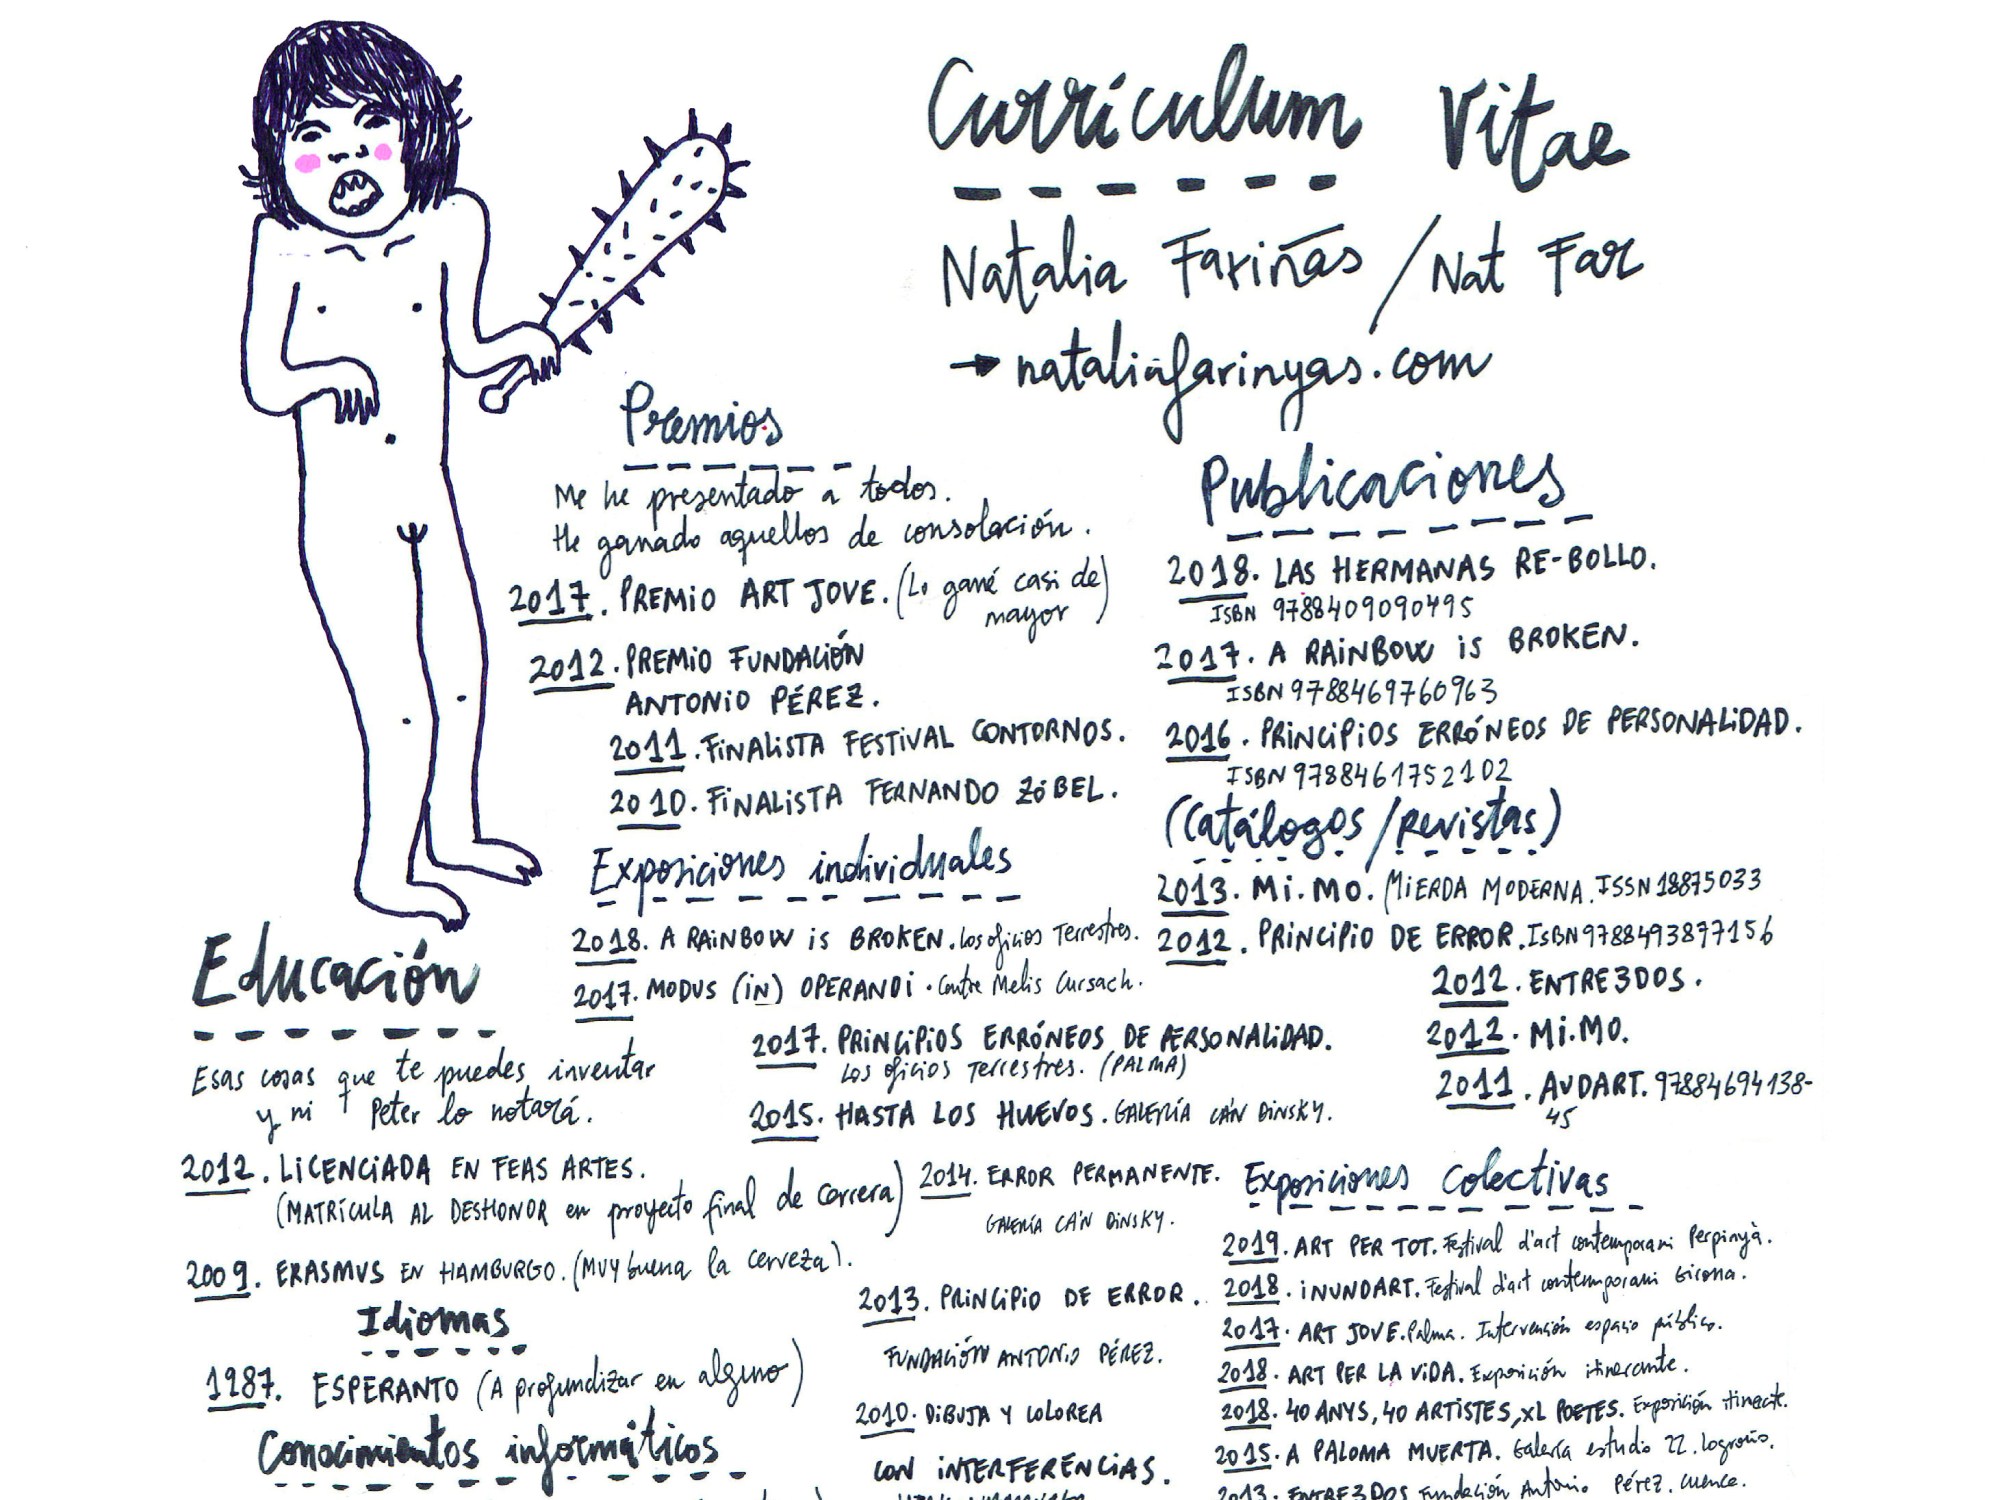 Curriculum Vitae
Natalia Fariñas / Nat Far
→ nataliafarinyas.com
Premios
Me he presentado a todos.
He ganado aquellos de consolación.
2017. PREMIO ART JOVE. (Lo gané casi de
mayor)
2012. PREMIO FUNDACIÓN
ANTONIO PÉREZ.
2011. FINALISTA FESTIVAL CONTORNOS.
2010. FINALISTA FERNANDO ZÓBEL.
Publicaciones
2018. LAS HERMANAS RE-BOLLO.
ISBN 9788409090495
2017. A RAINBOW is BROKEN.
ISBN 9788469760963
2016. PRINCIPIOS ERRÓNEOS DE PERSONALIDAD.
ISBN 9788461752102
(Catálogos / revistas)
2013. Mi.MO. (MIERDA MODERNA. ISSN 18875033
2012. PRINCIPIO DE ERROR. ISBN 9788493877156
2012. ENTRE3DOS.
2012. Mi.MO.
2011. AUDART. 97884694138-
45
Exposiciones individuales
2018. A RAINBOW is BROKEN. Los oficios Terrestres.
2017. MODUS (IN) OPERANDI. Centre Melis Cursach.
2017. PRINCIPIOS ERRÓNEOS DE PERSONALIDAD.
Los oficios Terrestres. (PALMA)
2015. HASTA LOS HUEVOS. GALERÍA CA'N DINSKY.
2014. ERROR PERMANENTE.
GALERÍA CA'N DINSKY.
2013. PRINCIPIO DE ERROR.
FUNDACIÓN ANTONIO PÉREZ.
2010. DIBUJA Y COLOREA
CON INTERFERENCIAS.
Educación
Esas cosas que te puedes inventar
y ni Peter lo notará.
2012. LICENCIADA EN FEAS ARTES.
(MATRÍCULA AL DESHONOR en proyecto final de carrera)
2009. ERASMUS EN HAMBURGO. (MUY buena la cerveza).
Idiomas
1987. ESPERANTO (A profundizar en alguno)
Conocimientos informáticos
Exposiciones Colectivas
2019. ART PER TOT. Festival d'art contemporani Perpinyà.
2018. INUNDART. Festival d'art contemporani Girona.
2017. ART JOVE. Palma. Intervención espacio público.
2018. ART PER LA VIDA. Exposición itinerante.
2018. 40 ANYS, 40 ARTISTES, XL POETES. Exposición
2015. A PALOMA MUERTA. Galería estudio 22. Logroño.
2013. ENTRE3DOS Fundación Antonio Pérez. Cuenca.